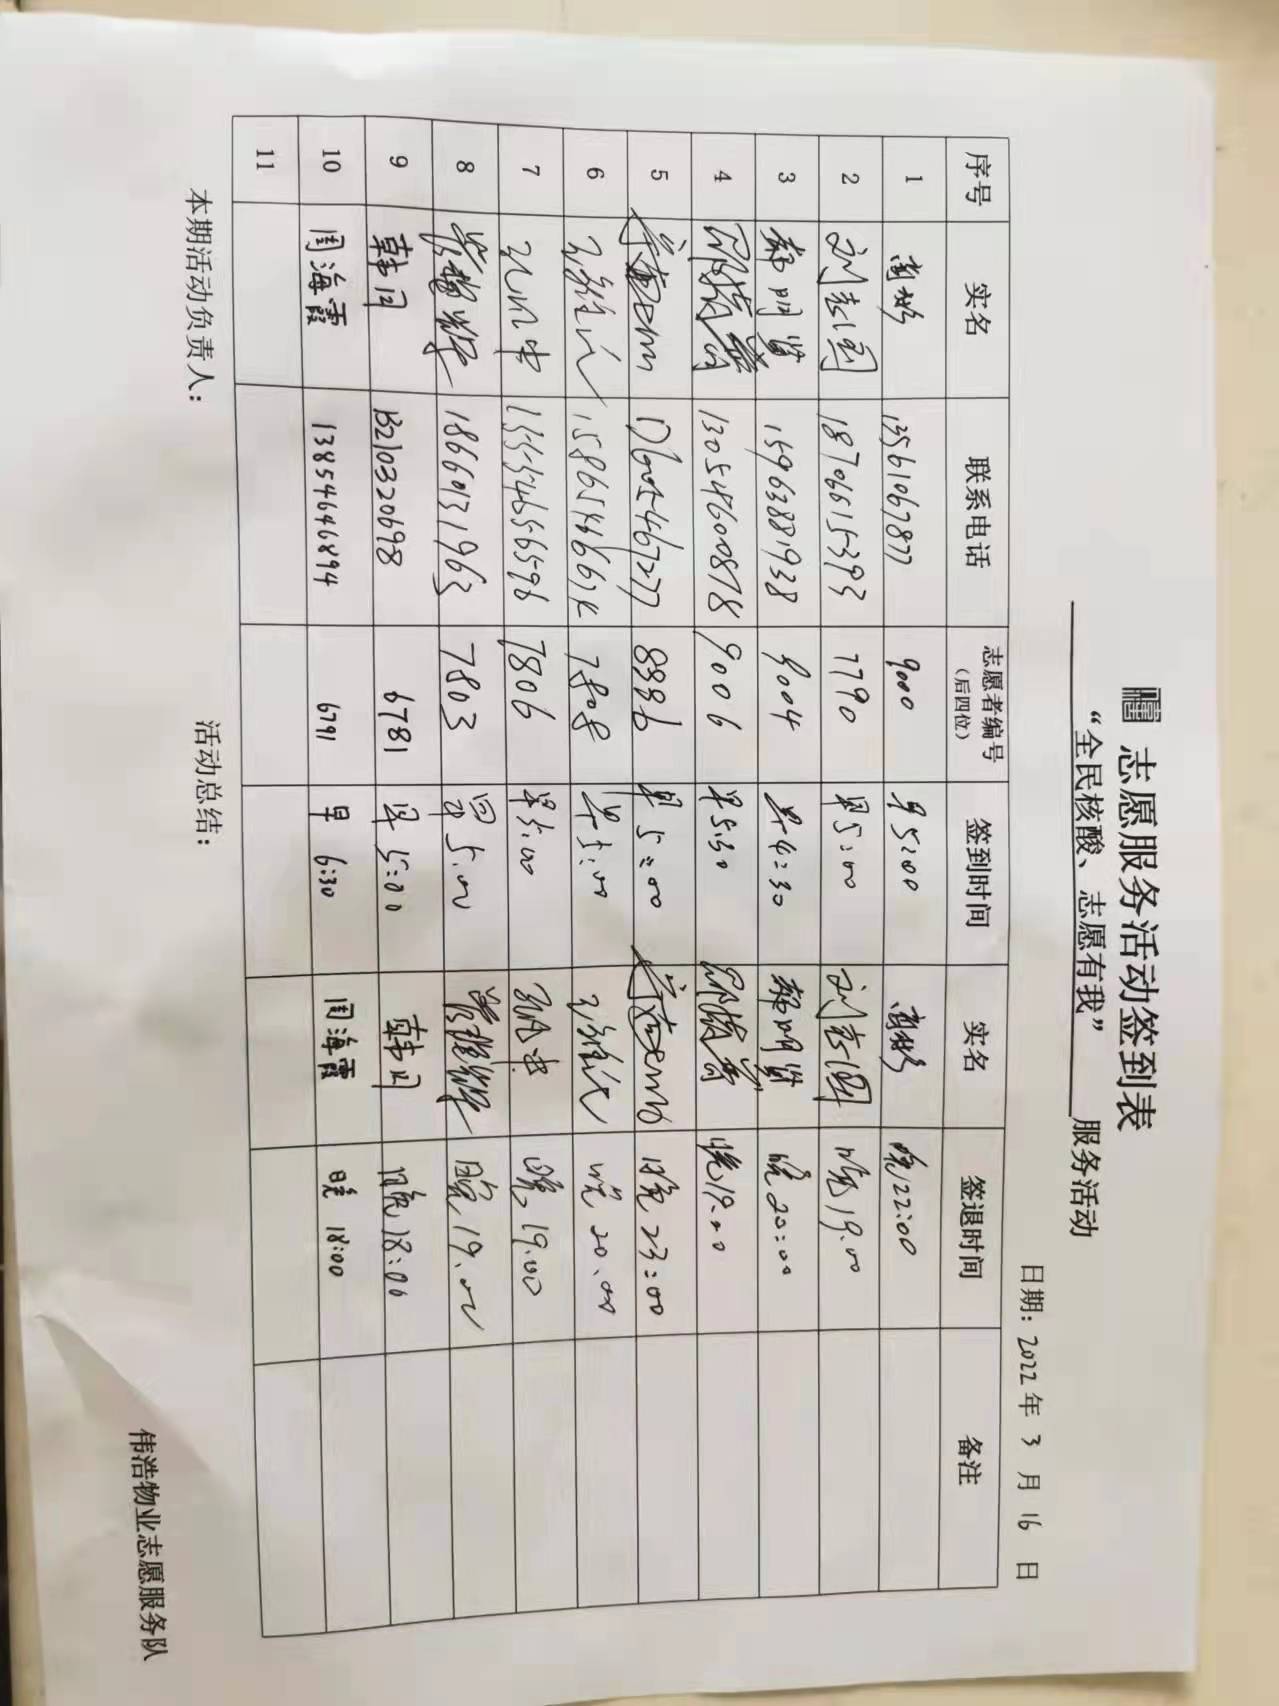 志愿服务活动签到表
“全民核酸、志愿有我” 服务活动
日期: 2022 年 3 月 16 日
序号 实名 联系电话 志愿者编号（后四位） 签到时间 实名 签退时间 备注
1 13561067877 9000 早 5:00 晚 22:00
2 刘志国 18706615393 7790 早 5:00 刘志国 晚 19.00
3 郝明贤 15963881938 9004 早 4:30 郝明贤 晚 20:00
4 13054600878 9006 早 5:30 晚 19.00
5 17605467277 8886 早 5:00 晚 23:00
6 7808 早 5:00 晚 20.00
7 7806 早 5:00 晚 19.00
8 18660131963 7803 早 5.00 晚 19.00
9 韩闪 13210320698 6781 早 5:00 韩闪 晚 18:00
10 周海霞 13854646894 6791 早 6:30 周海霞 晚 18:00
11
本期活动负责人: 活动总结:
伟浩物业志愿服务队